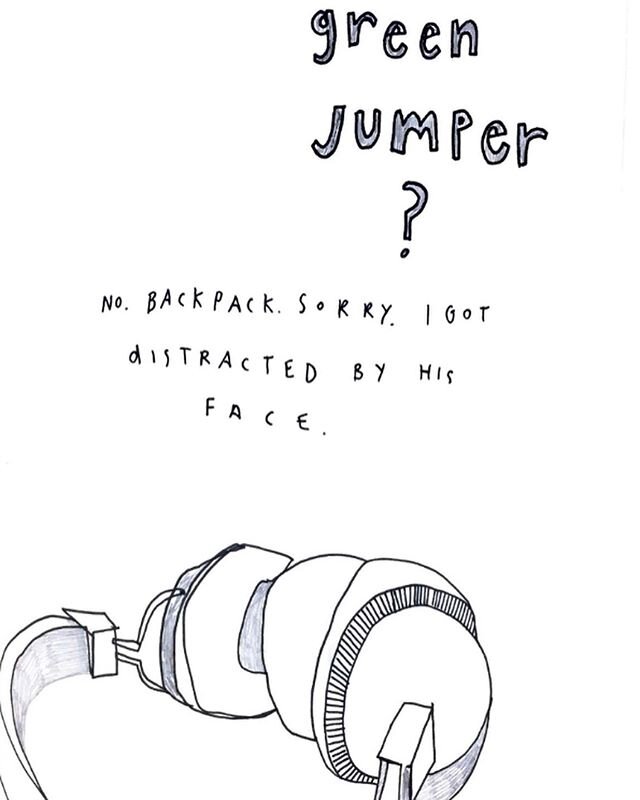 green
Jumper
?
No. BACKPACK. SORRY. I GOT
dISTRACTED BY HIS
FACE.